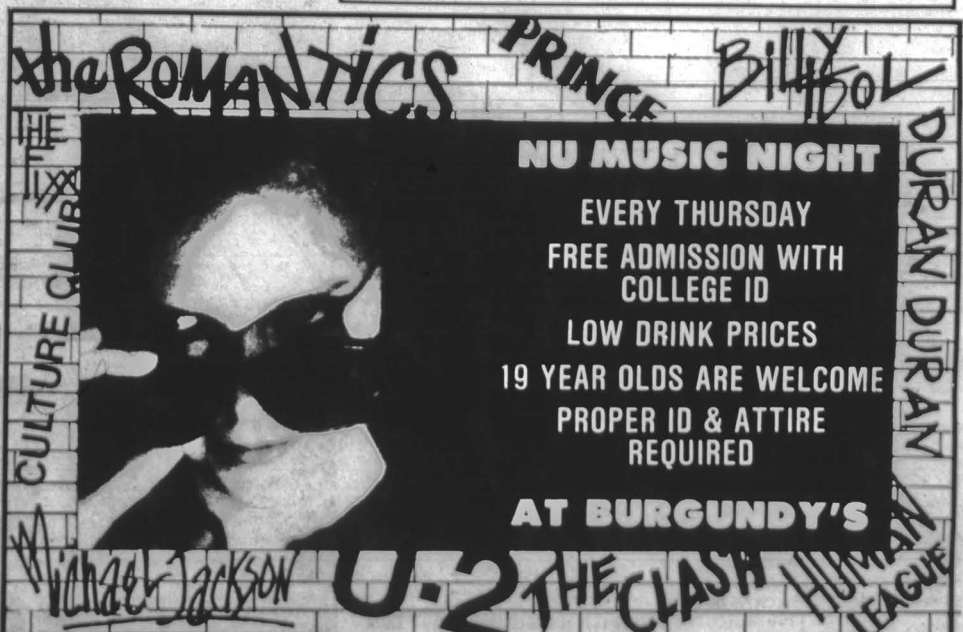 the ROMANTICS
PRINCE
BILLY IDOL
THE
FIXX
CULTURE CLUB
DURAN DURAN
NU MUSIC NIGHT
EVERY THURSDAY
FREE ADMISSION WITH
COLLEGE ID
LOW DRINK PRICES
19 YEAR OLDS ARE WELCOME
PROPER ID & ATTIRE
REQUIRED
AT BURGUNDY'S
Michael Jackson
U·2
THE CLASH
HUMAN
LEAGUE